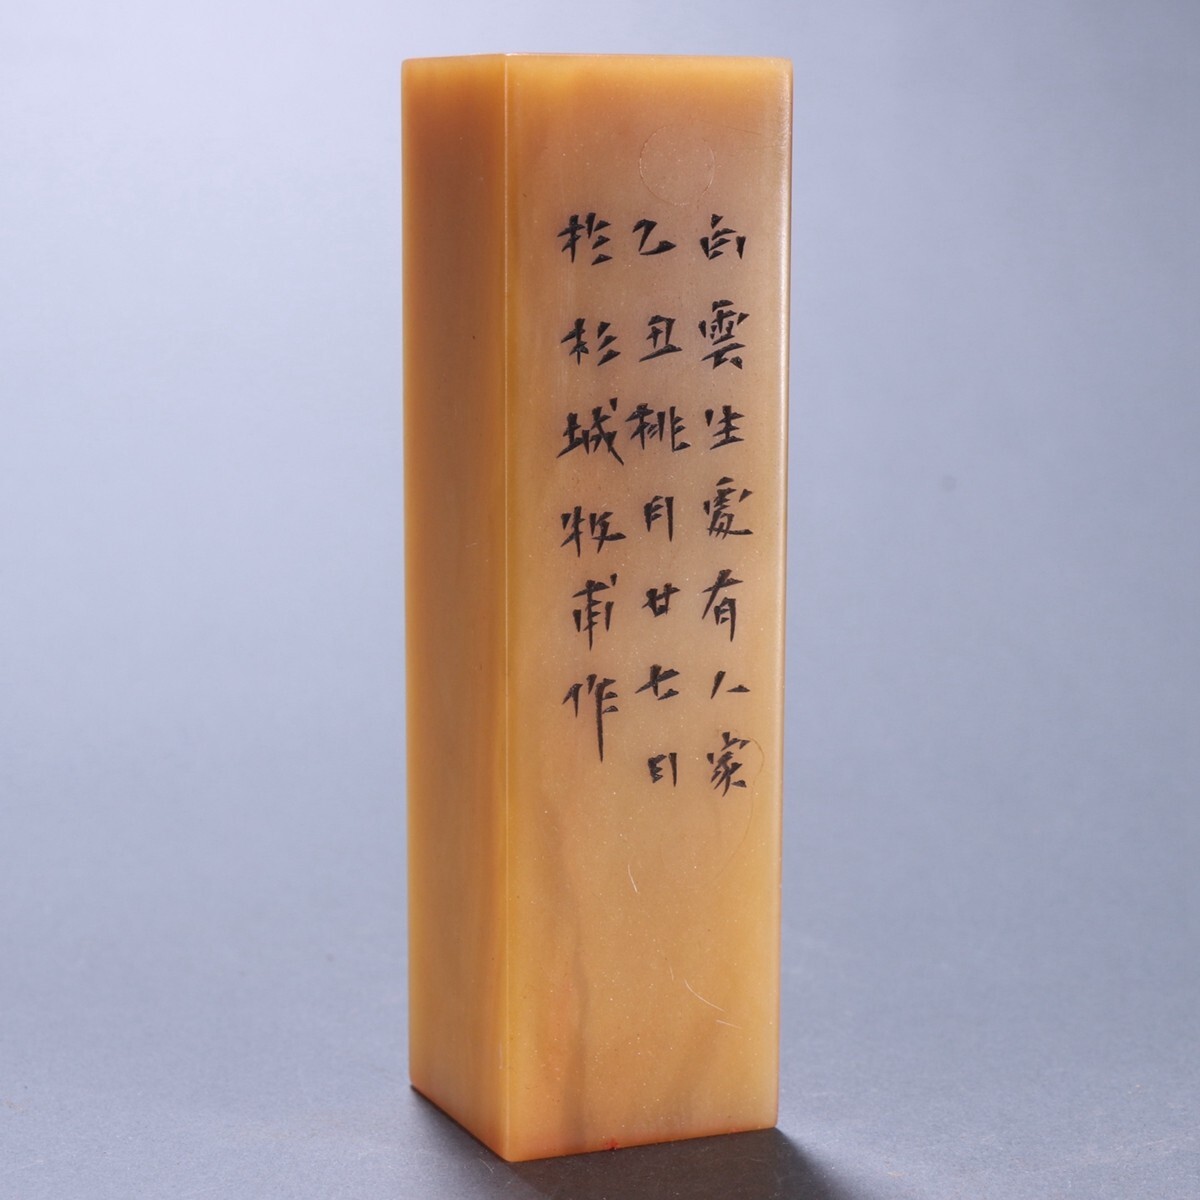 白雲生處有人家
乙丑桃月廿七日
於杉城牧甫作